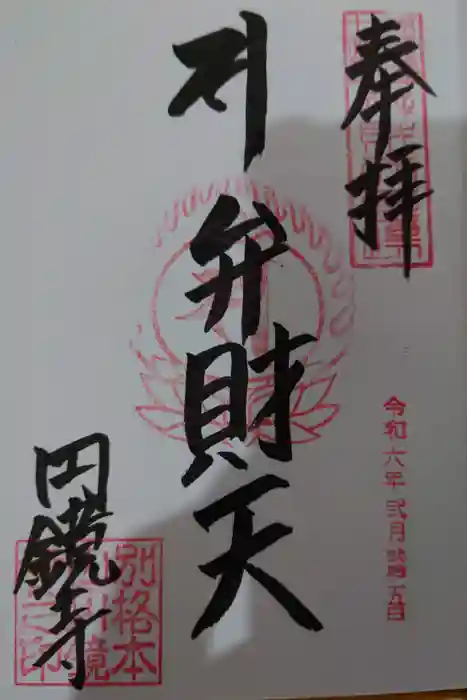 奉拝
令和六年弐月弐拾五日
弁財天
円鏡寺
別格本
山円鏡
寺之印